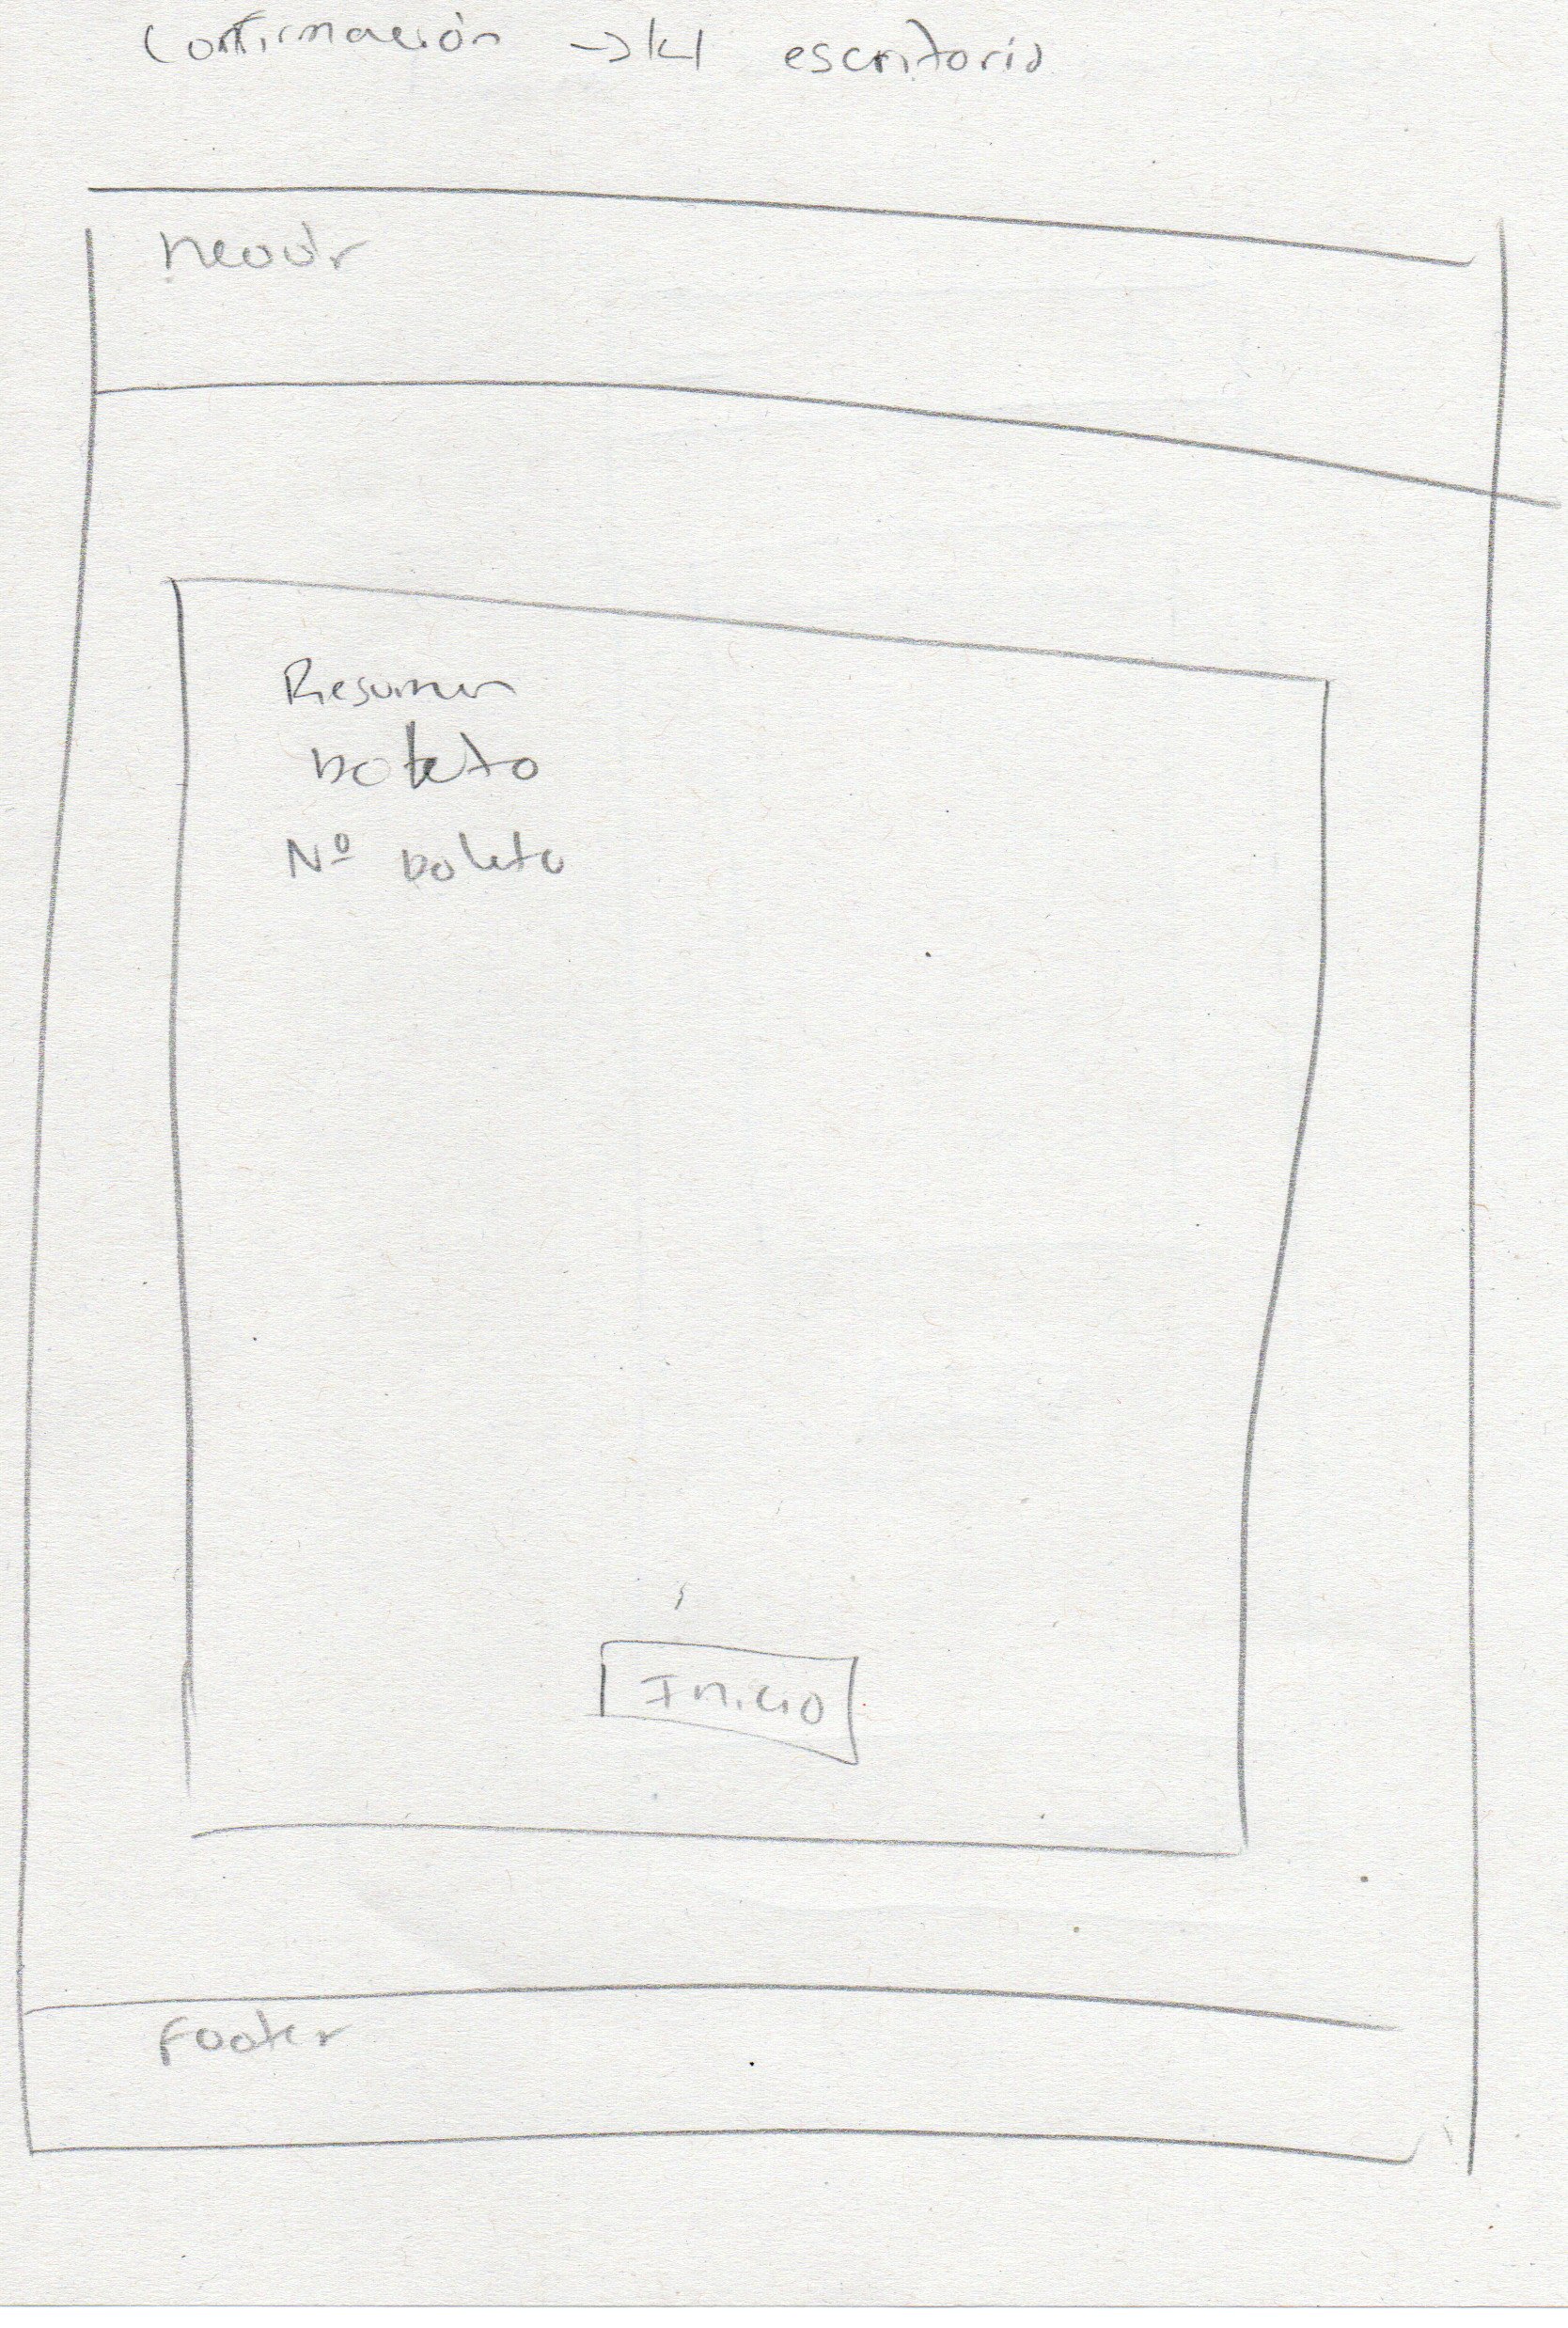 Confirmación → escritorio
Header
Resumen
boleto
Nº boleto
Inicio
Footer